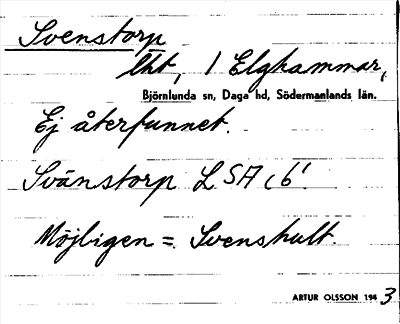 Svenstorp
lht, / Elghammar,
Björnlunda sn, Daga hd, Södermanlands län.
Ej återfunnet.
Svänstorp LSA c 6!
Möjligen = Svenshult.
ARTUR OLSSON 1943